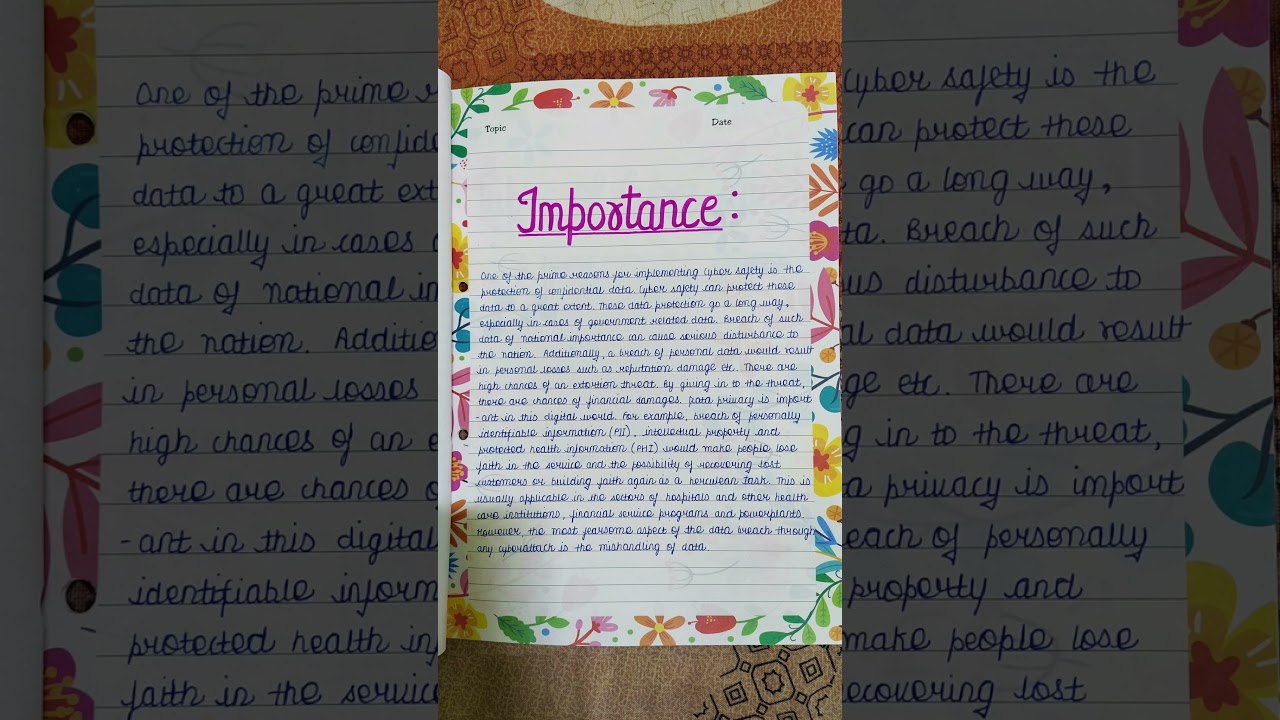 Topic
Date
Importance:
One of the prime reasons for implementing Cyber safety is the
protection of confidential data. Cyber safety can protect these
data to a great extent. These data protection go a long way,
especially in cases of government related data. Breach of such
data of national importance can cause serious disturbance to
the nation. Additionally, a breach of personal data would result
in personal losses such as reputation damage etc. There are
high chances of an extortion threat. By giving in to the threat,
there are chances of financial damages. Data privacy is import
-ant in this digital world. For example, breach of personally
identifiable information (PII), intellectual property and
protected health information (PHI) would make people lose
faith in the service and the possibility of recovering lost
customers or building faith again as a herculean task. This is
usually applicable in the sectors of hospitals and other health
care institutions, financial service programs and powerplants.
However, the most fearsome aspect of the data breach through
any cyberattack is the mishandling of data.